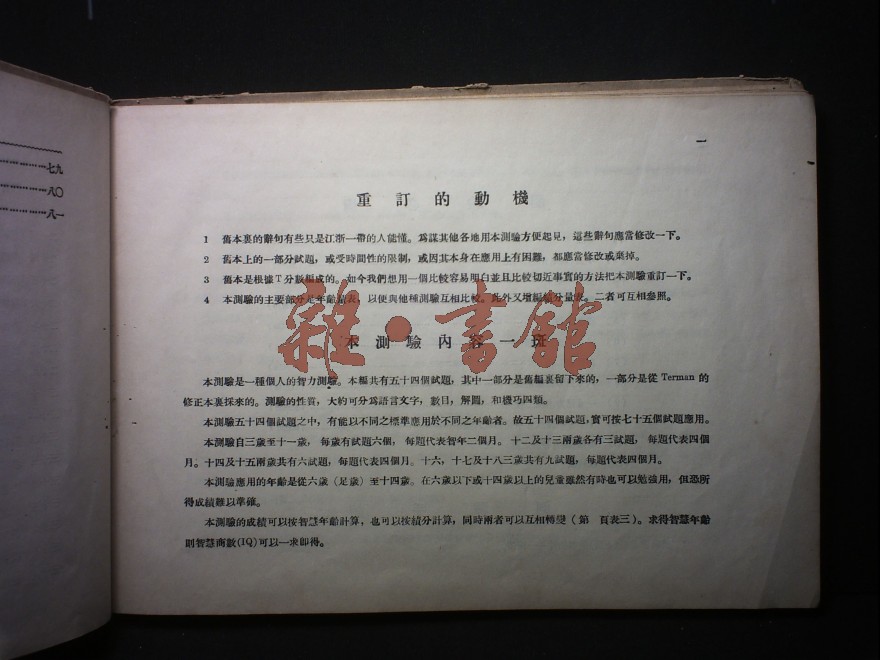 七九
八〇
八一
一
重訂的動機
1 舊本裏的辭句有些只是江浙一帶的人能懂。爲謀其他各地用本測驗方便起見，這些辭句應當修改一下。
2 舊本上的一部分試題，或受時間性的限制，或因其本身在應用上有困難，都應當修改或棄掉。
3 舊本是根據T分數編成的。如今我們想用一個比較容易明白並且比較切近事實的方法把本測驗重訂一下。
4 本測驗的主要部分是年齡量表，以便與他種測驗互相比較。此外又增編積分量表。二者可互相參照。
雜·書館
本測驗內容一斑
本測驗是一種個人的智力測驗。本編共有五十四個試題，其中一部分是舊編裏留下來的，一部分是從 Terman 的
修正本裏採來的。測驗的性質，大約可分爲語言文字，數目，解圖，和機巧四類。
本測驗五十四個試題之中，有能以不同之標準應用於不同之年齡者。故五十四個試題，實可按七十五個試題應用。
本測驗自三歲至十一歲，每歲有試題六個，每題代表智年二個月。十二及十三兩歲各有三試題，每題代表四個
月。十四及十五兩歲共有六試題，每題代表四個月。十六，十七及十八三歲共有九試題，每題代表四個月。
本測驗應用的年齡是從六歲（足歲）至十四歲。在六歲以下或十四歲以上的兒童雖然有時也可以勉強用，但恐所
得成績難以準確。
本測驗的成績可以按智慧年齡計算，也可以按績分計算，同時兩者可以互相轉變（第 頁表三）。求得智慧年齡
則智慧商數(IQ)可以一求即得。